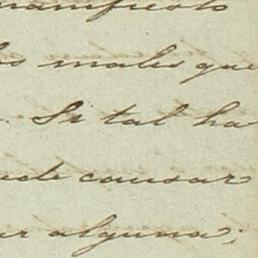 manifiesto
los males que
. Si tal ha
uede causar
ar alguna;